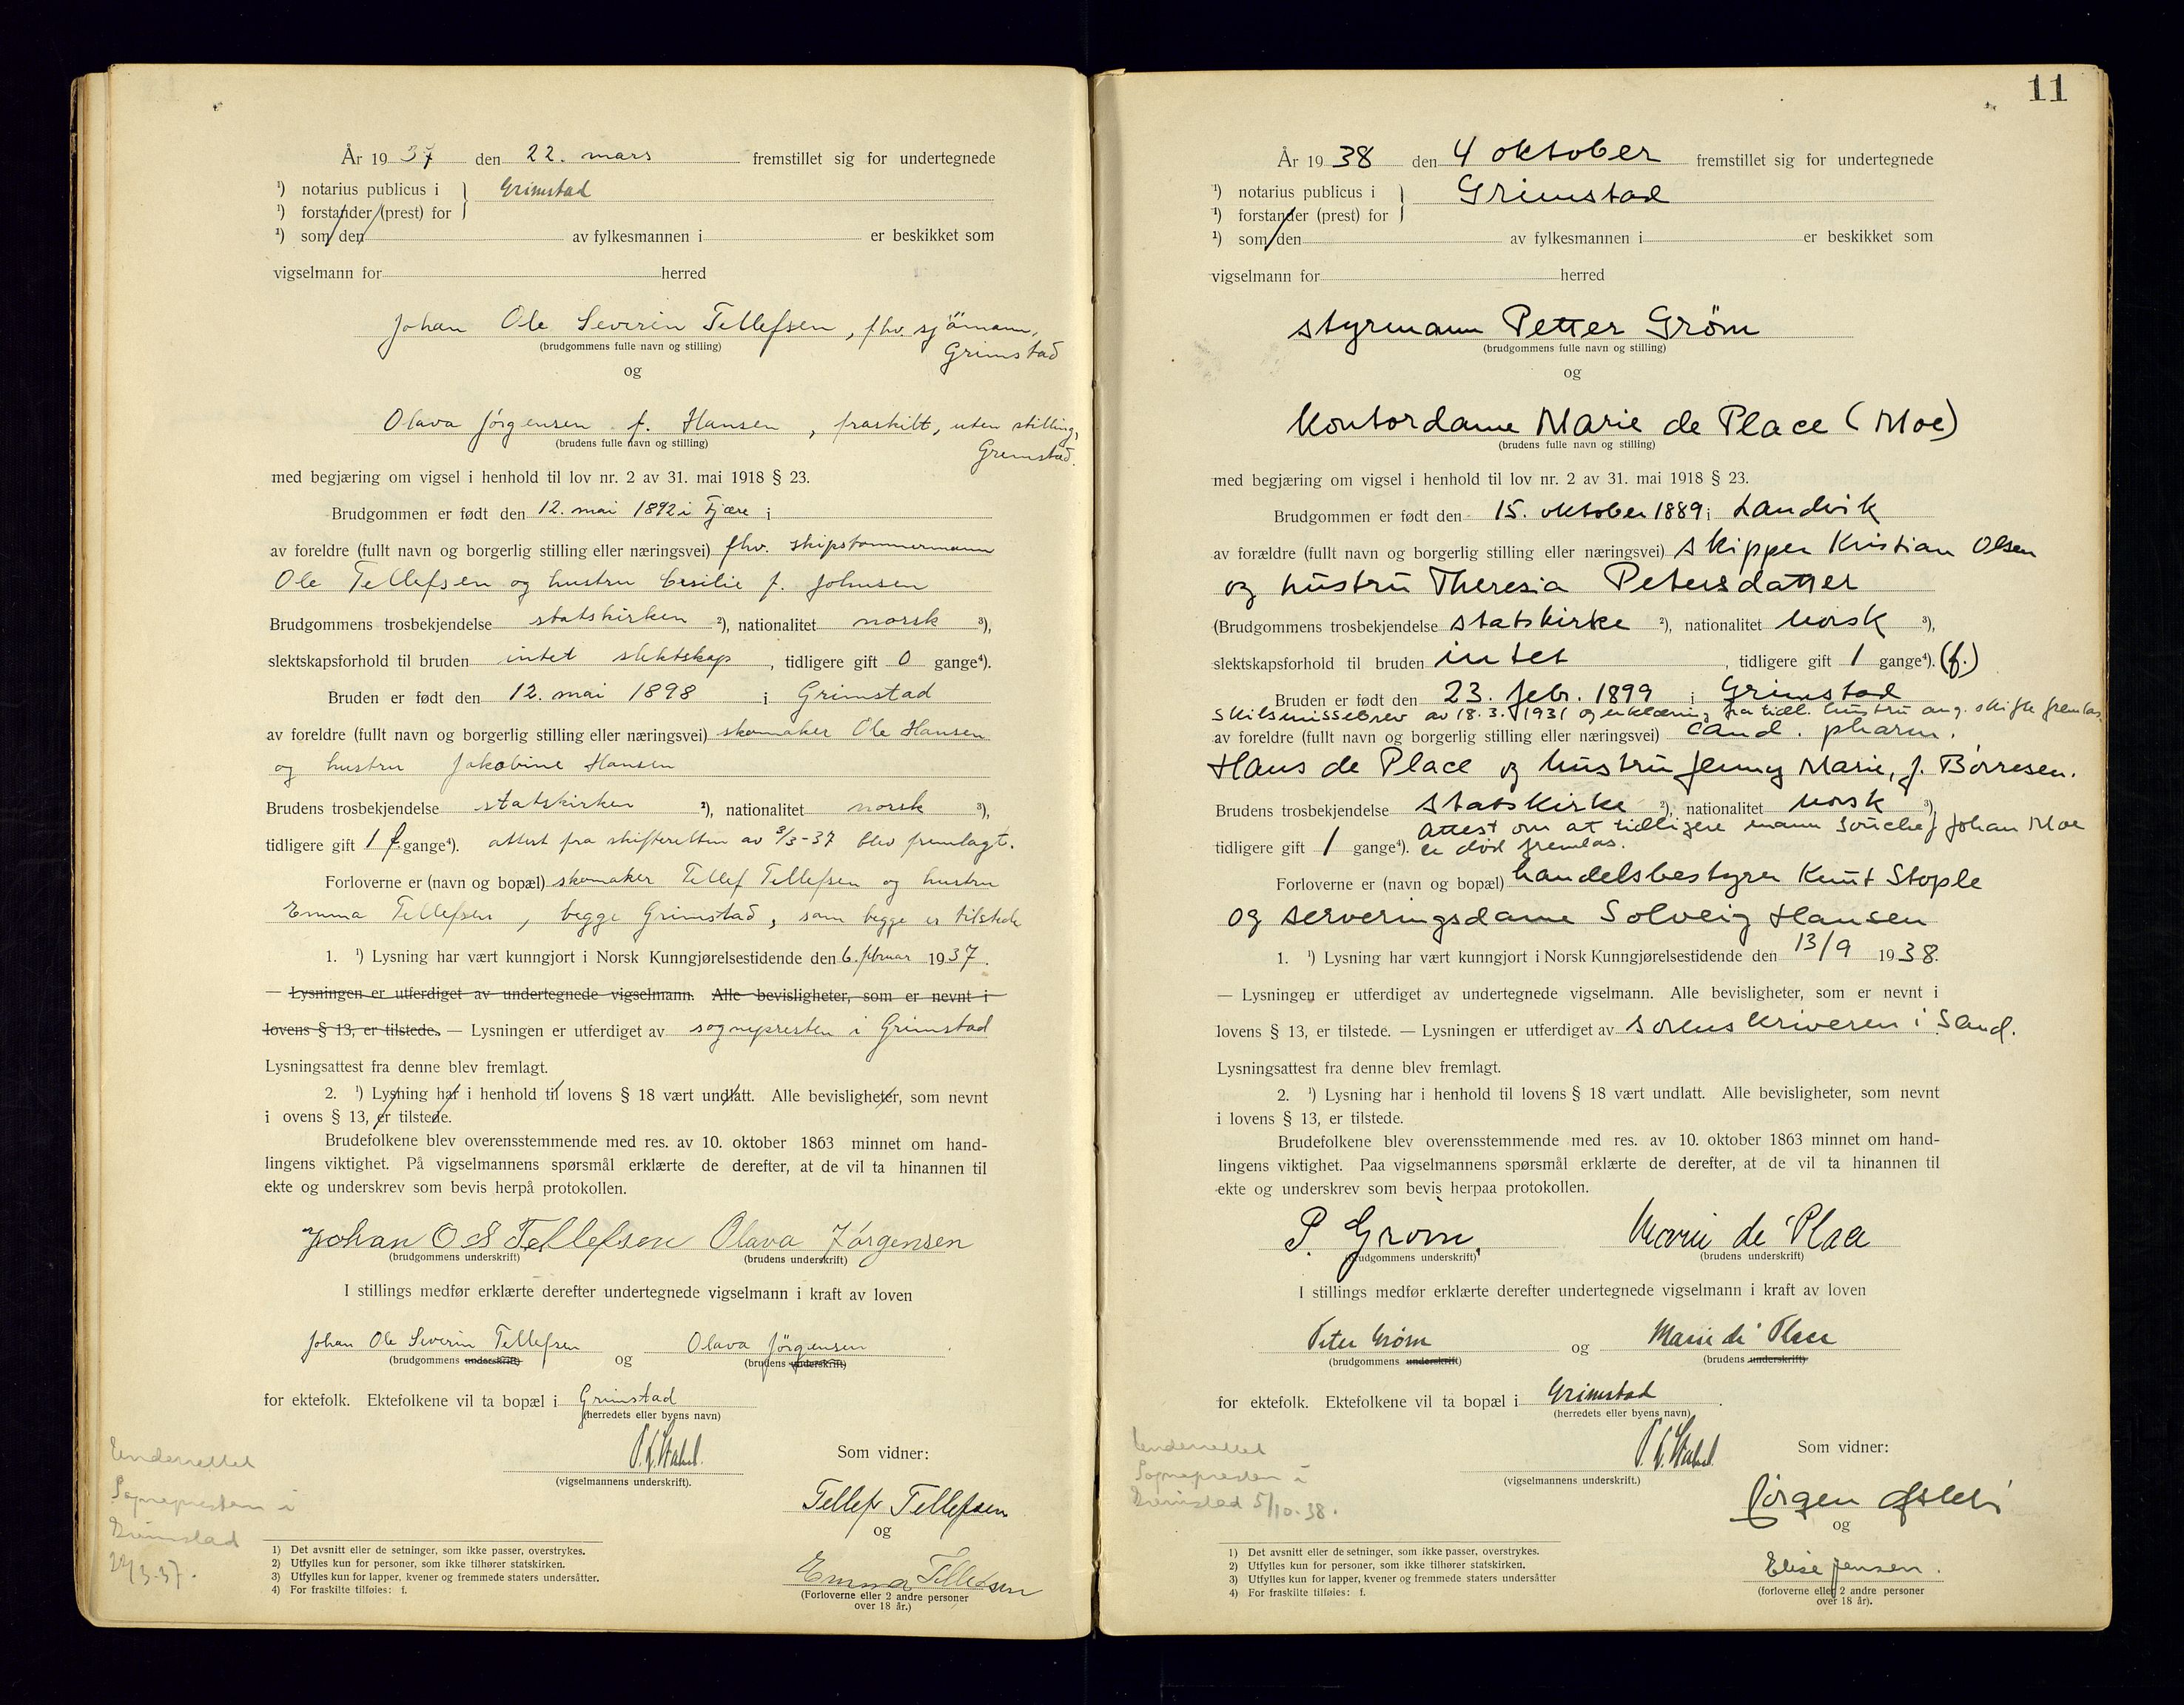 År 1937 den 22. mars fremstillet sig for undertegnede
¹) notarius publicus i } Grimstad
¹) forstander (prest) for
¹) som den av fylkesmannen i er beskikket som
vigselmann for herred
Johan Ole Severin Tellefsen, fhv. sjömann,
Grimstad
(brudgommens fulle navn og stilling)
og
Olava Jørgensen f. Hansen, fraskilt, uten stilling,
Grimstad.
(brudens fulle navn og stilling)
med begjæring om vigsel i henhold til lov nr. 2 av 31. mai 1918 § 23.
Brudgommen er født den 12. mai 1892 i Fjære i
av foreldre (fullt navn og borgerlig stilling eller næringsvei) fhv. skipstømmermann
Ole Tellefsen og hustru Cesilie f. Johnsen
Brudgommens trosbekjendelse statskirken ²), nationalitet norsk ³),
slektskapsforhold til bruden intet slektskap, tidligere gift 0 gange⁴).
Bruden er født den 12. mai 1898 i Grimstad
av foreldre (fullt navn og borgerlig stilling eller næringsvei) skomaker Ole Hansen
og hustru Jakobine Hansen
Brudens trosbekjendelse statskirken ²), nationalitet norsk ³),
tidligere gift 1 f. gange⁴). attest fra skifteretten av 3/3-37 blev fremlagt.
Forloverne er (navn og bopæl) skomaker Tellef Tellefsen og hustru
Emma Tellefsen, begge Grimstad, som begge er tilstede
1. ¹) Lysning har vært kunngjort i Norsk Kunngjørelsestidende den 6. februar 1937.
— Lysningen er utferdiget av undertegnede vigselmann. Alle bevisligheter, som er nevnt i
lovens § 13, er tilstede. — Lysningen er utferdiget av sognepresten i Grimstad
Lysningsattest fra denne blev fremlagt.
2. ¹) Lysning har i henhold til lovens § 18 vært undlatt. Alle bevisligheter, som nevnt
i ovens § 13, er tilstede.
Brudefolkene blev overensstemmende med res. av 10. oktober 1863 minnet om hand-
lingens viktighet. På vigselmannens spørsmål erklærte de derefter, at de vil ta hinannen til
ekte og underskrev som bevis herpå protokollen.
Johan O S Tellefsen Olava Jørgensen
(brudgommens underskrift) (brudens underskrift)
I stillings medfør erklærte derefter undertegnede vigselmann i kraft av loven
Johan Ole Severin Tellefsen og Olava Jørgensen
(brudgommens underskrift) (brudens underskrift)
for ektefolk. Ektefolkene vil ta bopæl i Grimstad
(herredets eller byens navn)
(vigselmannens underskrift).
Som vidner:
Tellef Tellefsen
og
Emma Tellefsen
(Forloverne eller 2 andre personer
over 18 år.)
Underrettet
Sognepresten i
Grimstad
1) Det avsnitt eller de setninger, som ikke passer, overstrykes.
2) Utfylles kun for personer, som ikke tilhører statskirken.
3) Utfylles kun for lapper, kvener og fremmede staters undersåtter.
4) For fraskilte tilføies: f.
11
År 1938 den 4 oktober fremstillet sig for undertegnede
¹) notarius publicus i } Grimstad
¹) forstander (prest) for
¹) som den av fylkesmannen i er beskikket som
vigselmann for herred
styrmann Petter Grøm
(brudgommens fulle navn og stilling)
og
Kontordame Marie de Place (Moe)
(brudens fulle navn og stilling)
med begjæring om vigsel i henhold til lov nr. 2 av 31. mai 1918 § 23.
Brudgommen er født den 15. oktober 1889 i Landvik
av forældre (fullt navn og borgerlig stilling eller næringsvei) skipper Kristian Olsen
og hustru Theresia Petersdatter
(Brudgommens trosbekjendelse statskirke ²), nationalitet norsk ³),
slektskapsforhold til bruden intet, tidligere gift 1 gange⁴). (f.)
Bruden er født den 23. febr. 1899 i Grimstad
Skilsmissebrev av 18.3.1931 og erklæring fra tidl. hustru ang. skifte fremlas.
av foreldre (fullt navn og borgerlig stilling eller næringsvei) cand. pharm.
Hans de Place og hustru Jenny Marie, f. Børresen.
Brudens trosbekjendelse statskirke ²), nationalitet norsk ³),
Attest om at tidligere mann Johan Moe
tidligere gift 1 gange⁴). er død fremlas.
Forloverne er (navn og bopæl) handelsbestyrer Knut Stople
og serveringsdame Solveig Hansen
1. ¹) Lysning har vært kunngjort i Norsk Kunngjørelsestidende den 13/9 1938.
— Lysningen er utferdiget av undertegnede vigselmann. Alle bevisligheter, som er nevnt i
lovens § 13, er tilstede. — Lysningen er utferdiget av sorenskriveren i Sand.
Lysningsattest fra denne blev fremlagt.
2. ¹) Lysning har i henhold til lovens § 18 vært undlatt. Alle bevisligheter, som nevnt
i lovens § 13, er tilstede.
Brudefolkene blev overensstemmende med res. av 10. oktober 1863 minnet om hand-
lingens viktighet. Paa vigselmannens spørsmål erklærte de derefter, at de vil ta hinannen til
ekte og underskrev som bevis herpaa protokollen.
P. Grøm. Marie de Place
(brudgommens underskrift) (brudens underskrift)
I stillings medfør erklærte derefter undertegnede vigselmann i kraft av loven
Peter Grøm og Marie de Place
(brudgommens underskrift) (brudens underskrift)
for ektefolk. Ektefolkene vil ta bopæl i Grimstad.
(herredets eller byens navn)
(vigselmannens underskrift.)
Som vidner:
Jørgen
og
Elise Jensen.
(forloverne eller 2 andre personer
over 18 år).
Underrettet
Sognepresten i
Grimstad 5/10-38.
1) Det avsnitt eller de setninger, som ikke passer, overstrykes.
2) Utfylles kun for personer, som ikke tilhører statskirken.
3) Utfylles kun for lapper, kvener og fremmede staters undersåtter
4) For fraskilte tilføies: f.